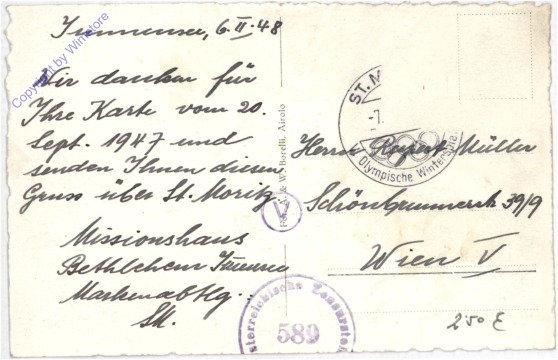 Immensee, 6.II.48
Wir danken für
Ihre Karte vom 20.
Sept. 1947 und
senden Ihnen diesen
Gruss über St. Moritz.
Missionshaus
Bethlehem Immensee
Markenabtlg.
Fot. A. & W. Borelli, Airolo
V
ST. M
-7.
V. Olympische Winterspiele
Herrn Rupert Müller
Schönbrunnerstr 39/9
Wien V
sterreichische Zensurste
589
250 E
Copyright by Winstore